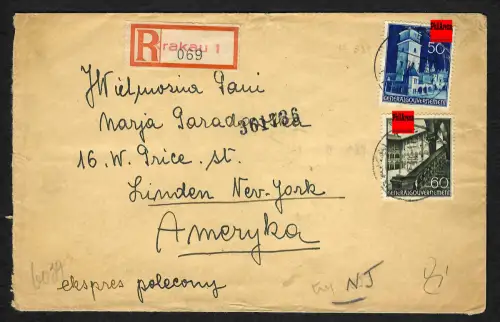 R Krakau 1
069
50
GENERALGOUVERNEMENT
60
GENERALGOUVERNEMENT
Pelikam
Pelikam
JWielmożna Pani
Marja Paradowska
361736
16. W. Price. st.
Linden New-York
Ameryka
ekspres polecony
6039
try N.J